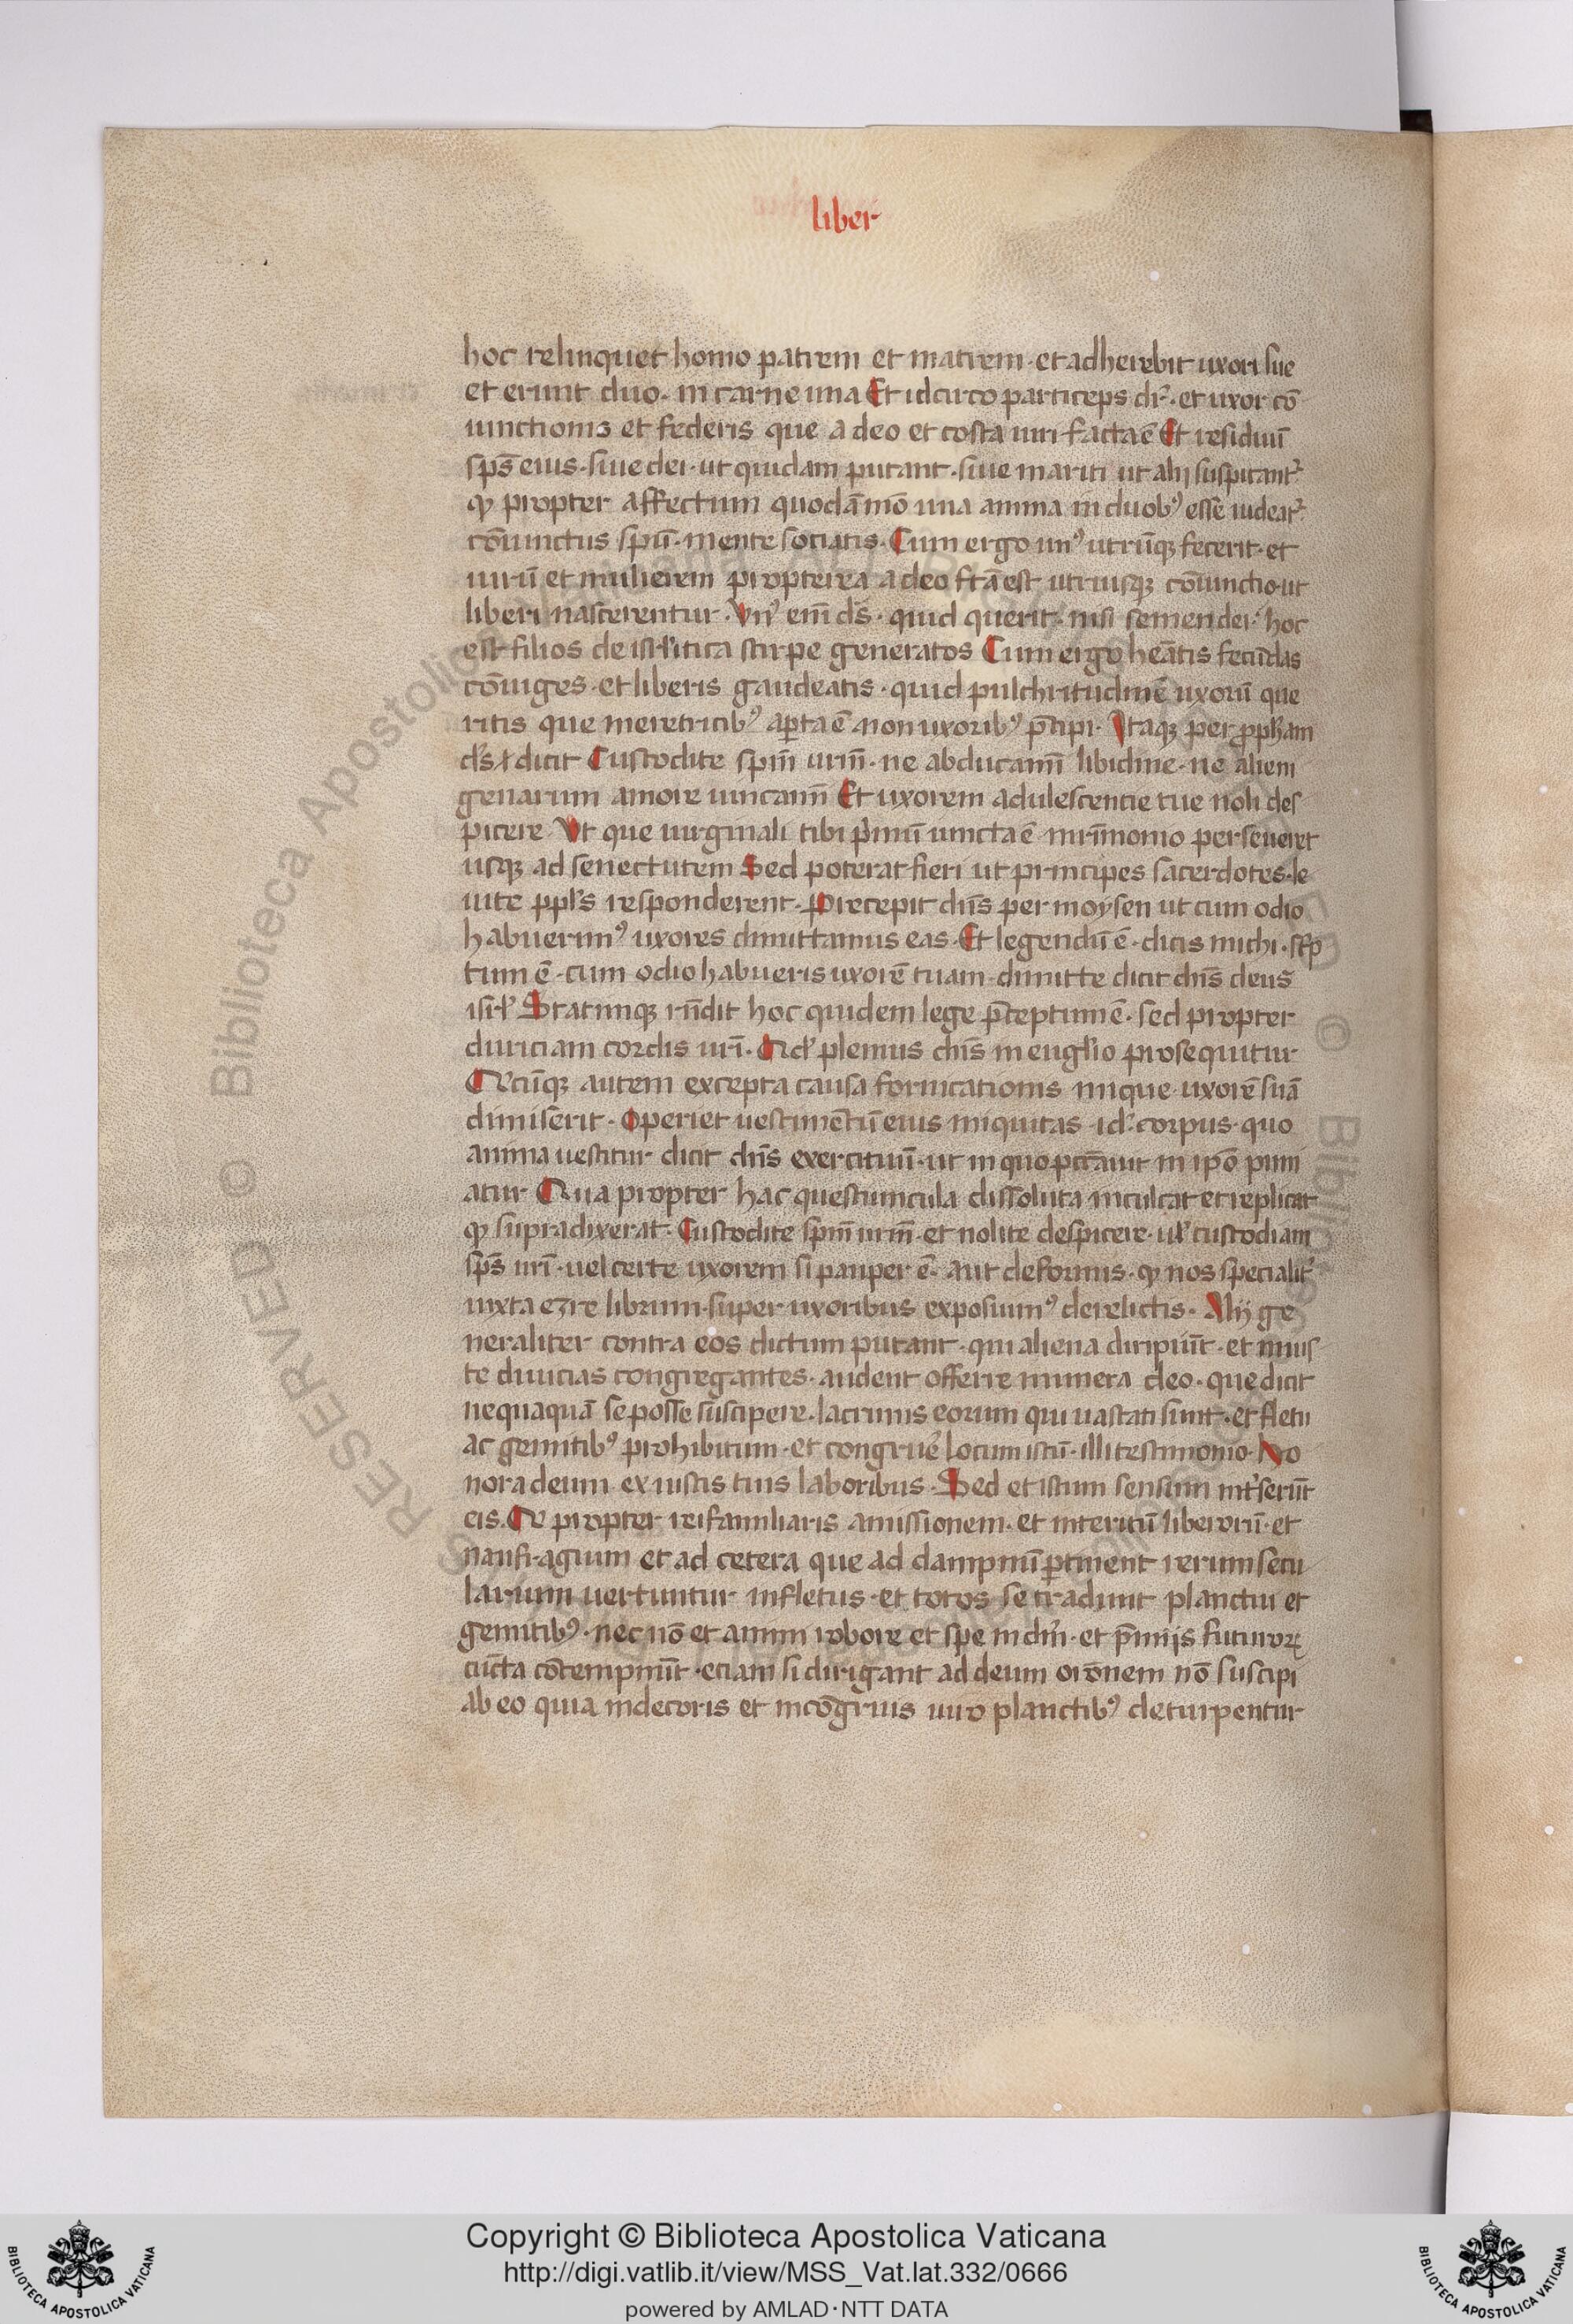 liber
hoc relinquet homo patrem et matrem · et adherebit uxori sue
et erunt duo · in carne una Et idcirco particeps dr̄ · et uxor cō
iunctionis et federis que a deo et costa uiri facta ē Et residuū
sps̄ eius · siue dei · ut quidam putant · siue mariti ut alij suspicantʳ
qꝫ propter affectum quodāmō una anima in duobꝰ esse uideatʳ
cōiunctus spū · mente sociatis · Cum ergo unꝰ utrūqꝫ fecerit · et
uirū et mulierem propterea a deo fcā est utriusqꝫ cōiunctio · ut
liberi nascerentur · Vnꝰ em̄ ds̄ · quid querit · nisi semen dei · hoc
est filios de isrl'itica stirpe generatos Cum ergo heātis fecūdas
cōiuges · et liberis gaudeatis · quid pulchritudinē uxorū que
ritis que meretricibꝰ apta ē non uxoribꝰ p̄cipi · Itaqꝫ per ꝓph̄am
dicit Custodite spm̄ urm̄ · ne abducamī libidine · ne alieni
genarum amore uincamī Et uxorem adulescentie tue noli des
picere Vt que uirginali tibi pⁱmū uincta ē mrīmonio perseueret
usqꝫ ad senectutem Sed poterat fieri ut principes sacerdotes · le
uite ppl's responderent · Precepit dn̄s per moysen ut cum odio
habuerimꝰ uxores dimittamus eas · Et legendū ē · dicis michi · sc̄p
tum ē · cum odio habueris uxorē tuam · dimitte dicit dn̄s deus
isrl' Statimqꝫ rn̄dit hoc quidem lege p̄ceptum ē · sed propter
duriciam cordis uri̅ · Qd' plenius dn̄s in eugl'io prosequitur
Qcūqꝫ autem excepta causa fornicationis inique uxorē suā
dimiserit · Operiet uestimētū eius iniquitas · id' corpus · quo
anima uestitur dicit dn̄s exercituū · ut in quo pcc̄auit in ipō puni
atur Qua propter hac questiuncula dissoluta inculcat et replicat
qꝫ supradixerat · Custodite spm̄ urm̄ · et nolite despicere · ul' custodiam
sps̄ uri̅ · uel certe uxorem si pauper ē · aut deformis · qꝫ nos specialitʳ
iuxta ezre librum · super uxoribus exposuimꝰ derelictis · Alij ge
neraliter contra eos dictum putant · qui aliena diripiūt · et inius
te diuicias congregantes · audent offerre munera deo · que dicit
nequaquā se posse suscipere · lacrimis eorum qui uastati sunt · et fletu
ac gemitibꝰ prohibitum · et congruē locum istū · illi testimonio · Ho
nora deum ex iustis tuis laboribus · Sed et istum sensum int'serūt
eis · Q propter rei familiaris amissionem · et interitū liberorū · et
naufragium et ad cetera que ad dampnū ꝑtinent rerum secu
larium uertuntur in fletus · et totos se tradunt planctui et
gemitibꝰ · nec nō et animi robore et spe in dn̄i · et p̄mijs futuroꝝ
cūcta cōtempnūt · eciam si dirigant ad deum orōnem nō suscipi
ab eo quia indecoris et incōgruis uiro planctibꝰ deturpentur
Copyright © Biblioteca Apostolica Vaticana
http://digi.vatlib.it/view/MSS_Vat.lat.332/0666
powered by AMLAD·NTT DATA
BIBLIOTECA APOSTOLICA VATICANA
BIBLIOTECA APOSTOLICA VATICANA